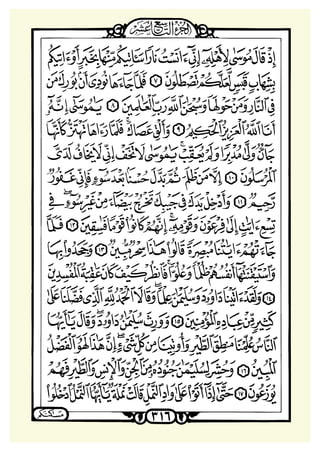 الجزء التاسع عشر
إِذْ قَالَ مُوسَىٰ لِأَهْلِهِۦٓ إِنِّىٓ ءَانَسْتُ نَارًا سَـَٔاتِيكُم مِّنْهَا بِخَبَرٍ أَوْ ءَاتِيكُم
بِشِهَابٍ قَبَسٍ لَّعَلَّكُمْ تَصْطَلُونَ ﴿٧﴾ فَلَمَّا جَآءَهَا نُودِىَ أَنۢ بُورِكَ مَن
فِى ٱلنَّارِ وَمَنْ حَوْلَهَا وَسُبْحَٰنَ ٱللَّهِ رَبِّ ٱلْعَٰلَمِينَ ﴿٨﴾ يَٰمُوسَىٰٓ إِنَّهُۥٓ
أَنَا ٱللَّهُ ٱلْعَزِيزُ ٱلْحَكِيمُ ﴿٩﴾ وَأَلْقِ عَصَاكَ ۚ فَلَمَّا رَءَاهَا تَهْتَزُّ كَأَنَّهَا
جَآنٌّ وَلَّىٰ مُدْبِرًا وَلَمْ يُعَقِّبْ ۚ يَٰمُوسَىٰ لَا تَخَفْ إِنِّى لَا يَخَافُ لَدَىَّ
ٱلْمُرْسَلُونَ ﴿١٠﴾ إِلَّا مَن ظَلَمَ ثُمَّ بَدَّلَ حُسْنًۢا بَعْدَ سُوٓءٍ فَإِنِّى غَفُورٌ
رَّحِيمٌ ﴿١١﴾ وَأَدْخِلْ يَدَكَ فِى جَيْبِكَ تَخْرُجْ بَيْضَآءَ مِنْ غَيْرِ سُوٓءٍ ۖ فِى
تِسْعِ ءَايَٰتٍ إِلَىٰ فِرْعَوْنَ وَقَوْمِهِۦٓ ۚ إِنَّهُمْ كَانُوا۟ قَوْمًا فَٰسِقِينَ ﴿١٢﴾ فَلَمَّا
جَآءَتْهُمْ ءَايَٰتُنَا مُبْصِرَةً قَالُوا۟ هَٰذَا سِحْرٌ مُّبِينٌ ﴿١٣﴾ وَجَحَدُوا۟ بِهَا
وَٱسْتَيْقَنَتْهَآ أَنفُسُهُمْ ظُلْمًا وَعُلُوًّا ۚ فَٱنظُرْ كَيْفَ كَانَ عَٰقِبَةُ ٱلْمُفْسِدِينَ
﴿١٤﴾ وَلَقَدْ ءَاتَيْنَا دَاوُۥدَ وَسُلَيْمَٰنَ عِلْمًا ۖ وَقَالَا ٱلْحَمْدُ لِلَّهِ ٱلَّذِى فَضَّلَنَا عَلَىٰ
كَثِيرٍ مِّنْ عِبَادِهِ ٱلْمُؤْمِنِينَ ﴿١٥﴾ وَوَرِثَ سُلَيْمَٰنُ دَاوُۥدَ ۖ وَقَالَ يَٰٓأَيُّهَا
ٱلنَّاسُ عُلِّمْنَا مَنطِقَ ٱلطَّيْرِ وَأُوتِينَا مِن كُلِّ شَىْءٍ ۖ إِنَّ هَٰذَا لَهُوَ ٱلْفَضْلُ
ٱلْمُبِينُ ﴿١٦﴾ وَحُشِرَ لِسُلَيْمَٰنَ جُنُودُهُۥ مِنَ ٱلْجِنِّ وَٱلْإِنسِ وَٱلطَّيْرِ فَهُمْ
يُوزَعُونَ ﴿١٧﴾ حَتَّىٰٓ إِذَآ أَتَوْا۟ عَلَىٰ وَادِ ٱلنَّمْلِ قَالَتْ نَمْلَةٌ يَٰٓأَيُّهَا ٱلنَّمْلُ ٱدْخُلُوا۟
٣١٦
مَسَٰكِنَكُمْ